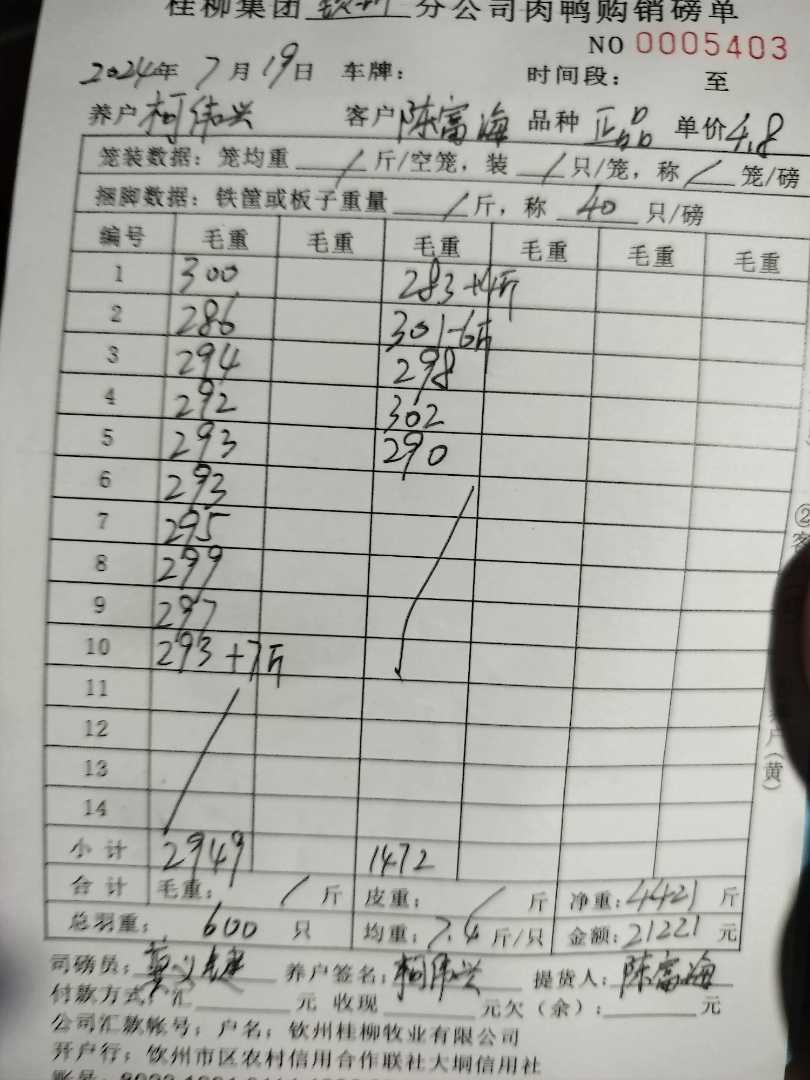 桂柳集团 钦州 分公司肉鸭购销磅单
NO 0005403
2024年 7月19日 车牌: 时间段: 至
养户 柯伟兴 客户 陈富海 品种 正品 单价 4.8
笼装数据: 笼均重 / 斤/空笼, 装 / 只/笼, 称 / 笼/磅
捆脚数据: 铁筐或板子重量 / 斤, 称 40 只/磅
编号 毛重 毛重 毛重 毛重 毛重 毛重
1 300 283+4斤
2 286 301-6斤
3 294 298
4 292 302
5 293 290
6 293
7 295
8 299
9 297
10 293+7斤
11
12
13
14
小计 2949 1472
合计 毛重: / 斤 皮重: / 斤 净重: 4421 斤
总羽重: 600 只 均重: 7.4 斤/只 金额: 21221 元
司磅员: 养户签名: 柯伟兴 提货人: 陈富海
付款方式: 汇 元 收现 元欠(余): 元
公司汇款帐号: 户名: 钦州桂柳牧业有限公司
开户行: 钦州市区农村信用合作联社大垌信用社
账号:
②客
户(黄)